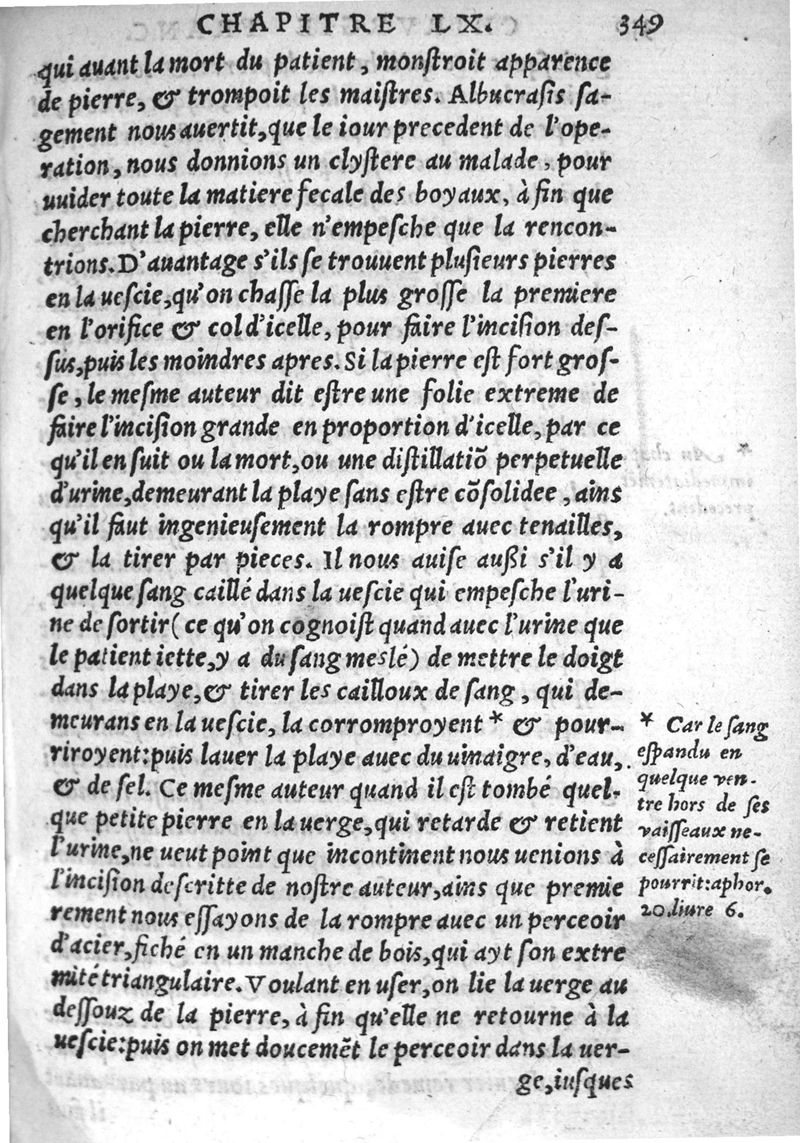 CHAPITRE LX. 349
qui auant la mort du patient, monſtroit apparence
de pierre, & trompoit les maiſtres. Albucraſis ſa-
gement nous auertit, que le iour precedent de l'ope-
ration, nous donnions un clyſtere au malade, pour
uuider toute la matiere fecale des boyaux, à fin que
cherchant la pierre, elle n'empeſche que la rencon-
trions. D'auantage s'ils ſe trouuent pluſieurs pierres
en la ueſcie, qu'on chaſſe la plus groſſe la premiere
en l'orifice & col d'icelle, pour faire l'inciſion deſ-
ſus, puis les moindres apres. Si la pierre eſt fort groſ-
ſe, le meſme auteur dit eſtre une folie extreme de
faire l'inciſion grande en proportion d'icelle, par ce
qu'il en ſuit ou la mort, ou une diſtillatiõ perpetuelle
d'urine, demeurant la playe sans eſtre cõſolidee, ains
qu'il faut ingenieuſement la rompre auec tenailles,
& la tirer par pieces. Il nous auiſe außi s'il y a
quelque ſang caillé dans la ueſcie qui empeſche l'uri-
ne de ſortir (ce qu'on cognoiſt quand auec l'urine que
le patient iette, y a du ſang meslé) de mettre le doigt
dans la playe, & tirer les cailloux de ſang, qui de-
meurans en la ueſcie, la corromproyent * & pour-
riroyent: puis lauer la playe auec du uinaigre, d'eau,
& de ſel. Ce meſme auteur quand il eſt tombé quel-
que petite pierre en la uerge, qui retarde & retient
l'urine, ne ueut point que incontinent nous uenions à
l'inciſion deſcritte de noſtre auteur, ains que premie
rement nous eſſayons de la rompre auec un perceoir
d'acier, fiché en un manche de bois, qui ayt ſon extre
mité triangulaire. Voulant en uſer, on lie la uerge au
deſſouz de la pierre, à fin qu'elle ne retourne à la
ueſcie: puis on met doucemẽt le perceoir dans la uer-
ge, iuſques
* Car le ſang
eſpandu en
quelque ven-
tre hors de ſes
vaiſſeaux ne-
ceſſairement ſe
pourrit: aphor.
20. liure 6.